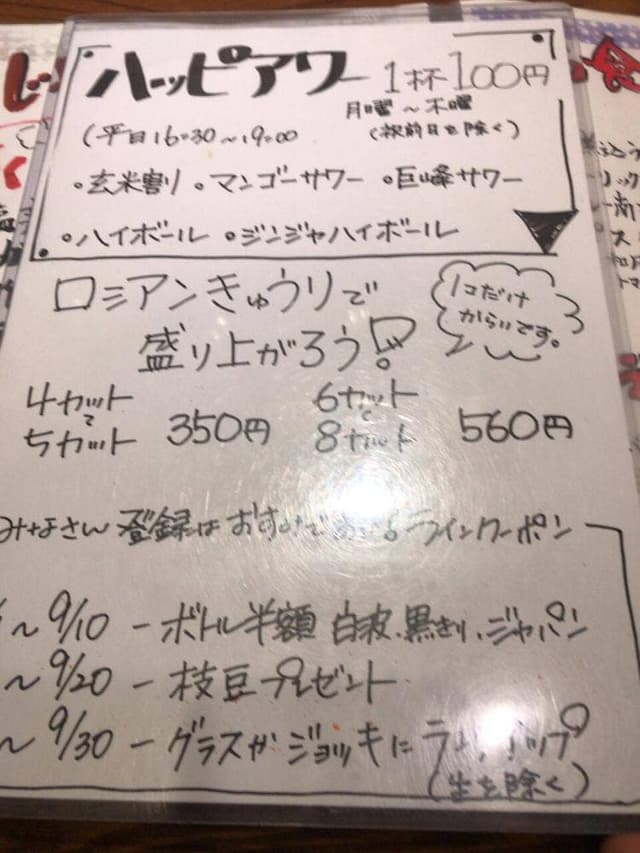 ハッピアワー 1杯100円
月曜〜木曜
(平日16:30〜19:00 (祝前日を除く)
・玄米割り ・マンゴーサワー ・巨峰サワー
・ハイボール ・ジンジャハイボール
ロシアンきゅうりで
盛り上がろう!?
1コだけ
からいです。
4カット
で
5カット
350円
6カット
で
8カット
560円
みなさん 登録はおすみで ラインクーポン
〜9/10 ー ボトル半額 白波、黒きり、ジャパン
〜9/20 ー 枝豆プレゼント
〜9/30 ー グラスがジョッキに
(生を除く)